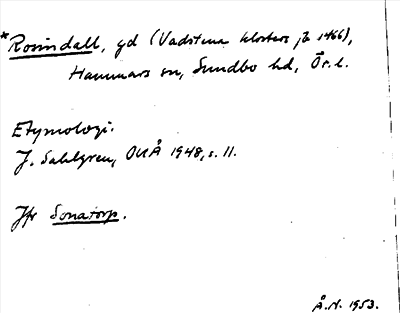 *Rosindall, gd (Vadstena klosters jb 1466),
Hammars sn, Sundbo hd, Ör. l.
Etymologi.
J. Sahlgren, OUÅ 1948, s. 11.
Jfr Sonatorp.
Å. N. 1953.